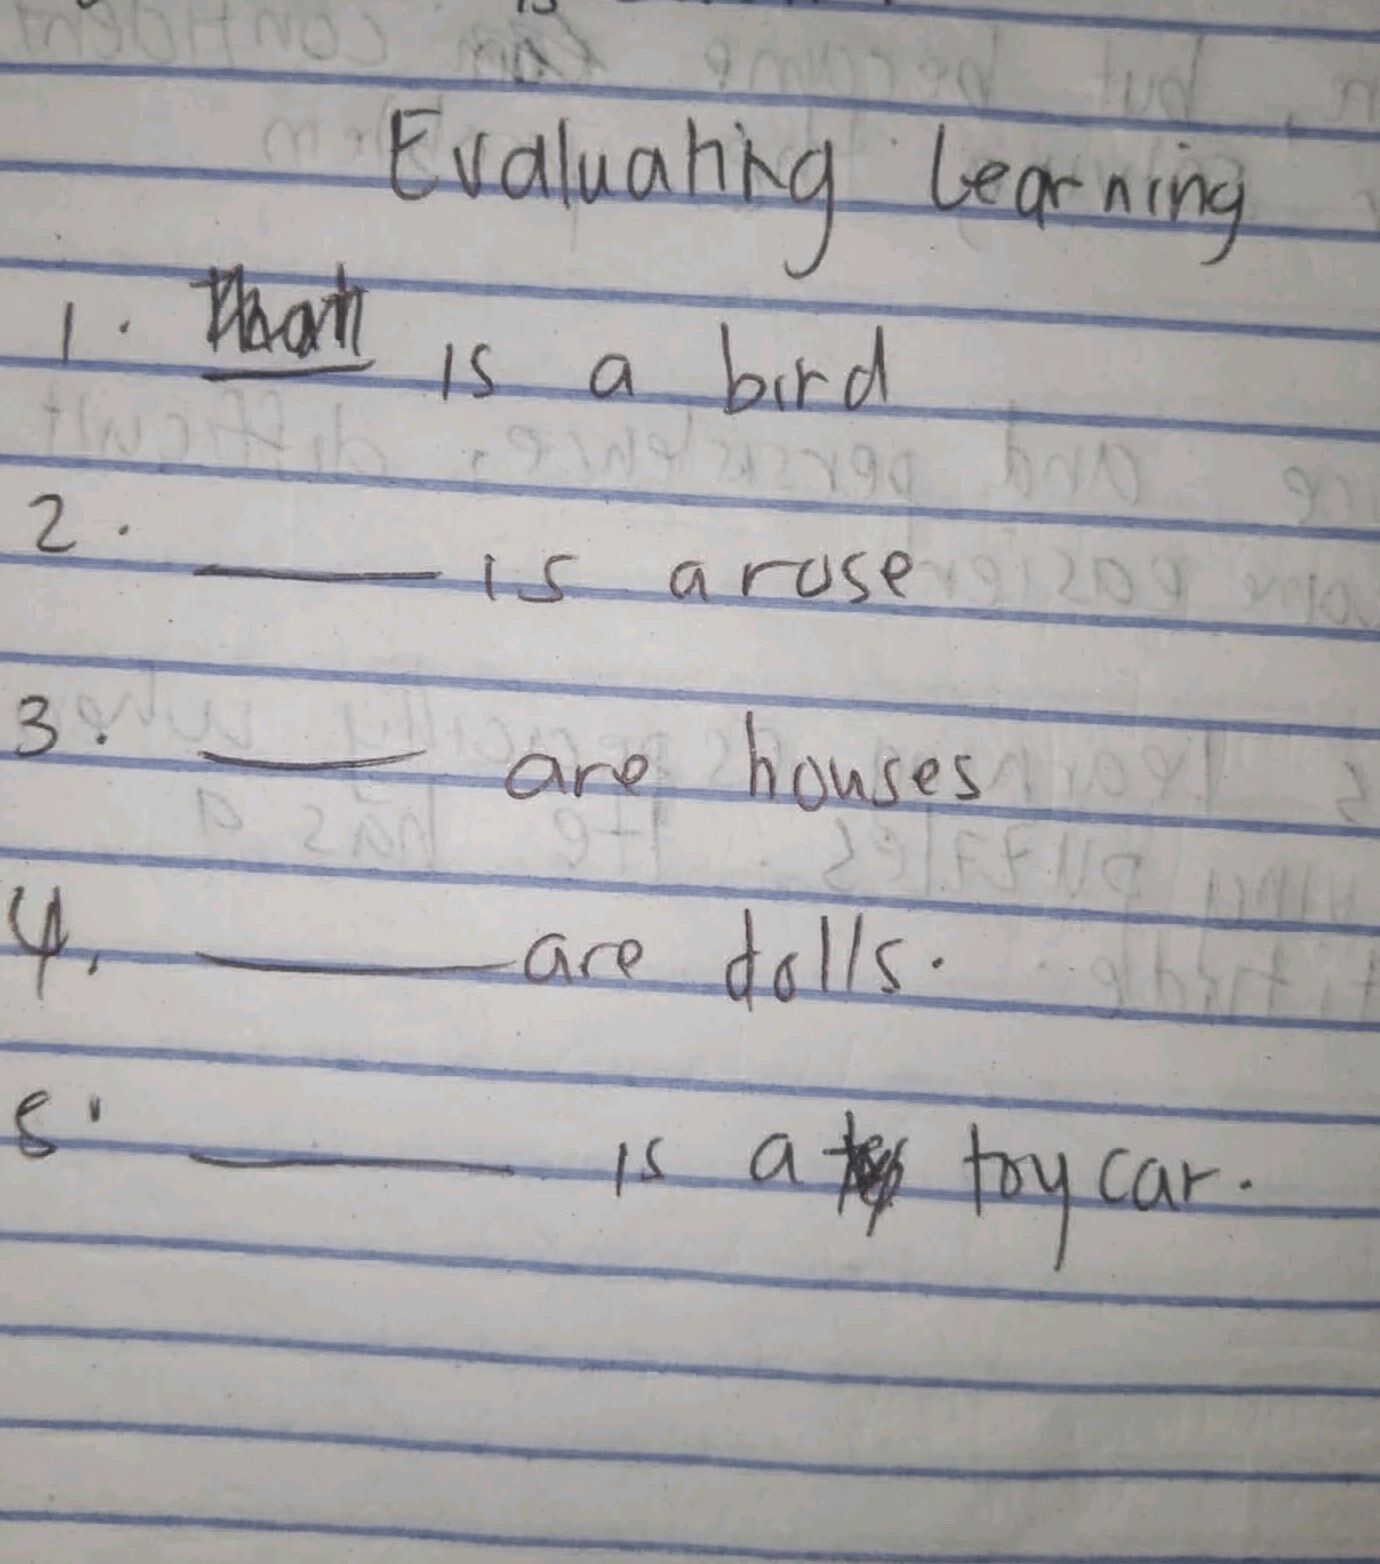 Evaluating Learning
1. That is a bird
2. ____ is a rose
3. ____ are houses
4. ____ are dolls.
5. ____ is a toy car.